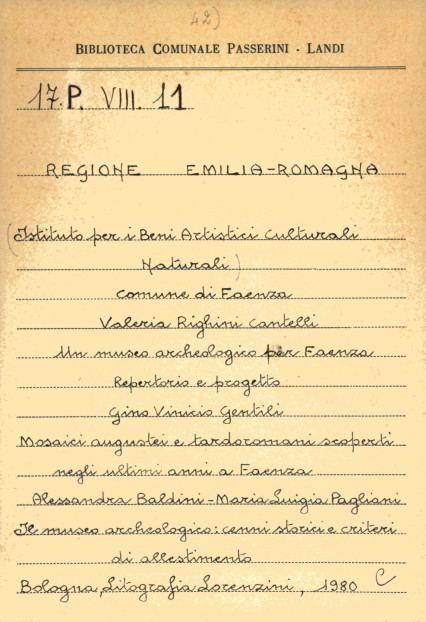 42)
BIBLIOTECA COMUNALE PASSERINI - LANDI
17.P. VIII. 11
REGIONE EMILIA-ROMAGNA
(Istituto per i Beni Artistici Culturali
Naturali)
Comune di Faenza
Valeria Righini Cantelli
Un museo archeologico per Faenza
Repertorio e progetto
Gino Vinicio Gentili
Mosaici augustei e tardoromani scoperti
negli ultimi anni a Faenza
Alessandra Baldini-Maria Luigia Pagliani
Il museo archeologico: cenni storici e criteri
di allestimento
Bologna, Litografia Lorenzini, 1980 C